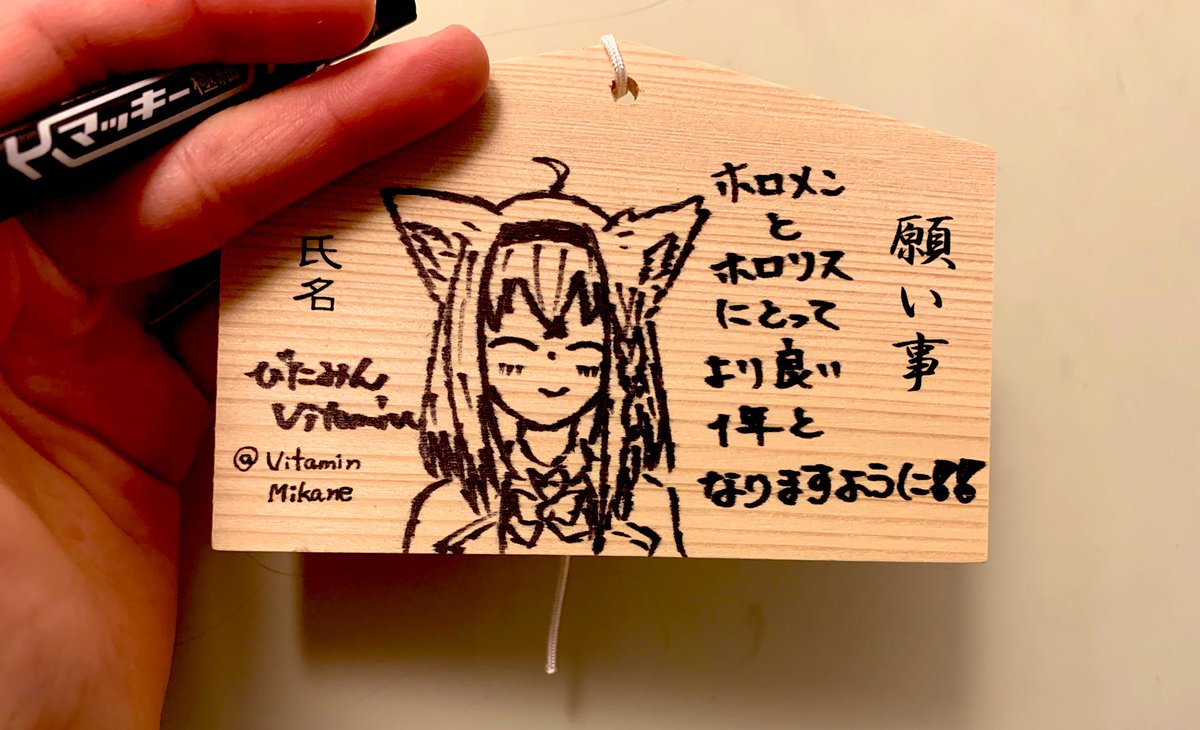 マッキー
願い事
ホロメン
と
ホロリス
にとって
より良い
1年と
なりますように!!
氏名
びたみん
Vitamin
@Vitamin
Mikane